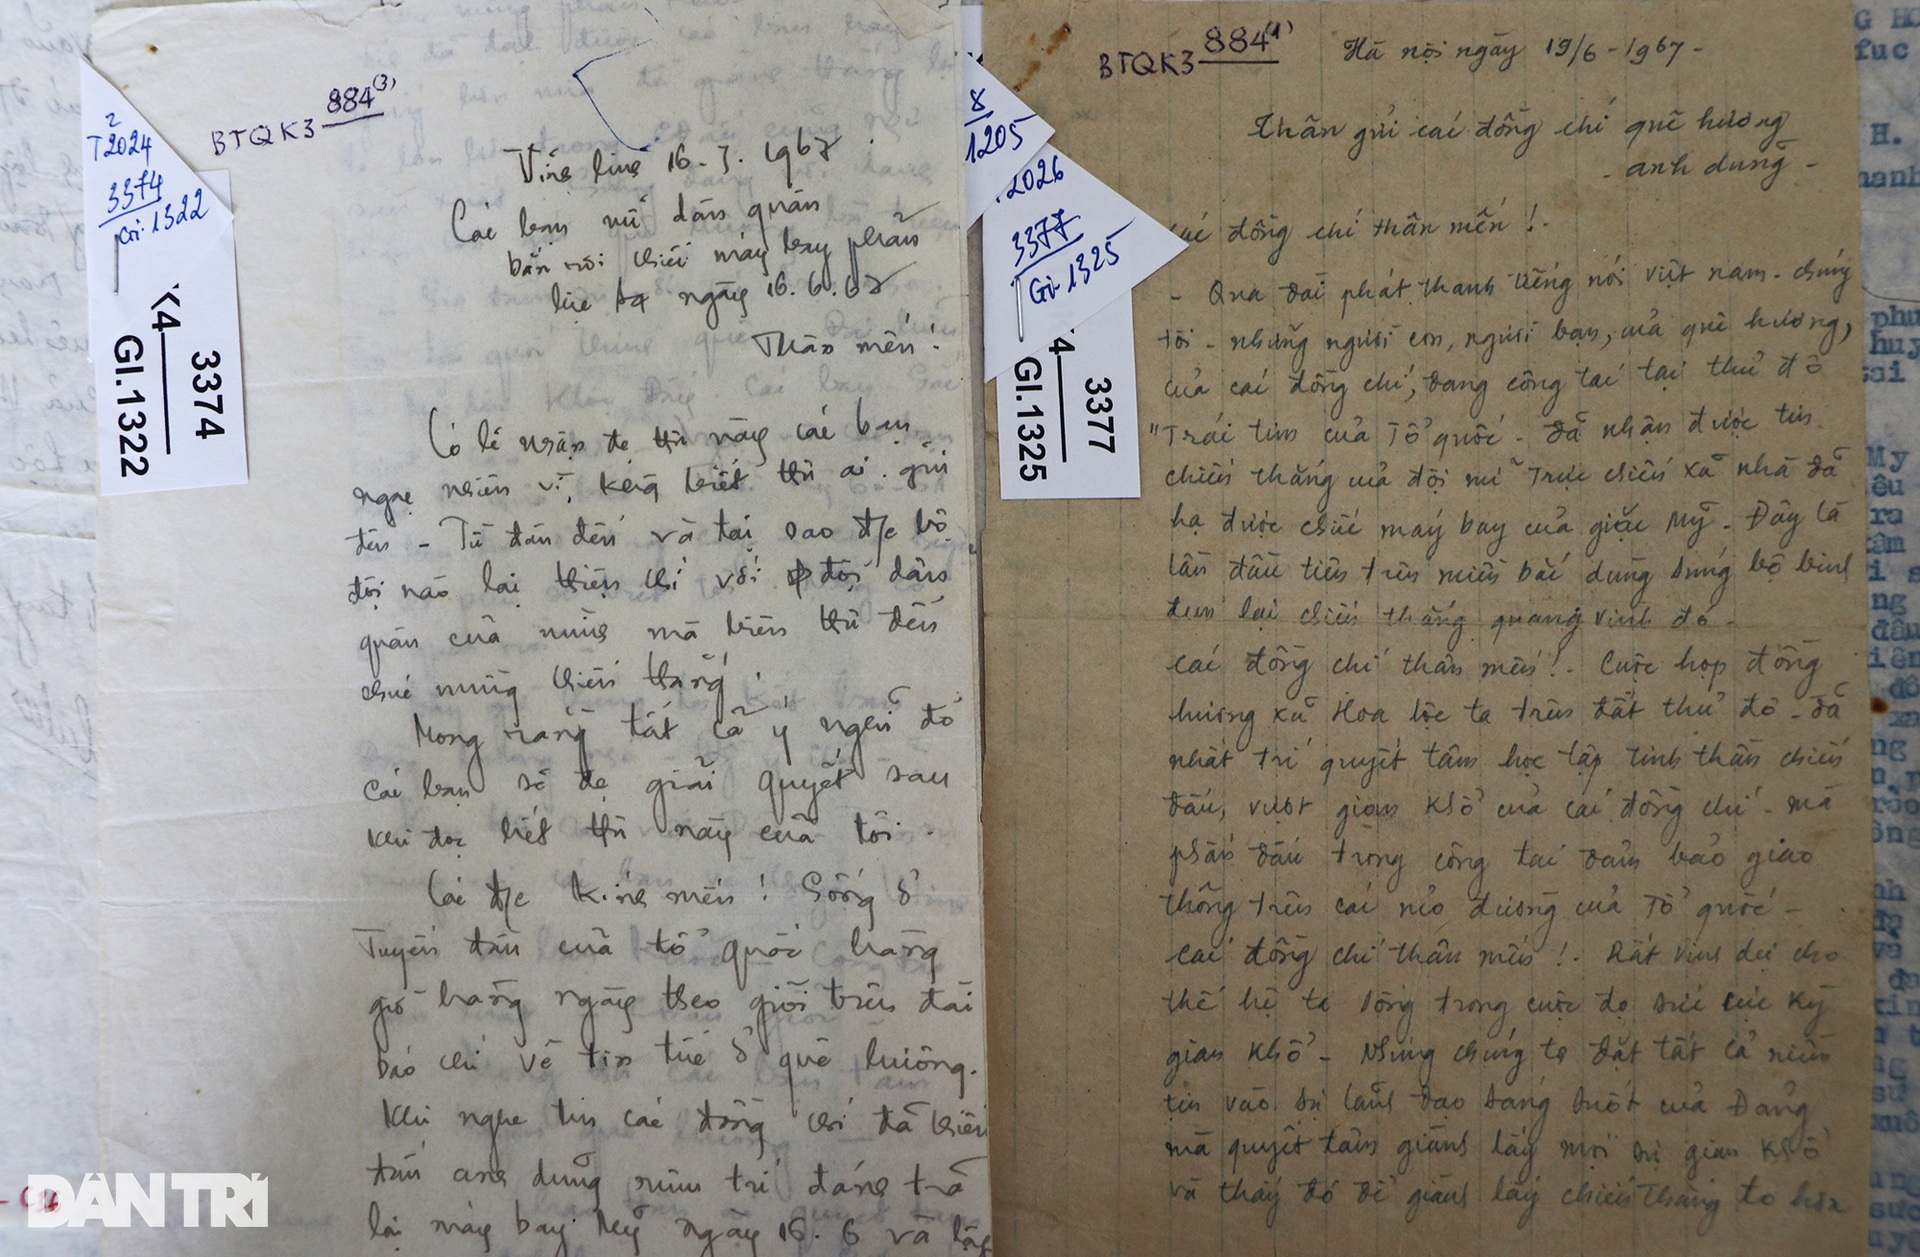 BTQK3 884(3)
T2024
3374
Gi.1322
K4 3374
GI.1322
Vĩnh linh 16-7.1967
Các bạn nữ dân quân
bắn rơi chiếc máy bay phản
lực Mỹ ngày 16.6.67
Thân mến!
Có lẽ nhận đc thư này các bạn
ngạc nhiên vì, không biết thư ai gửi
đến - Từ đâu đến và tại sao đ/c bộ
đội nào lại thiện chí với đội dân
quân của mình mà biên thư đến
chúc mừng chiến thắng.
Mong rằng tất cả ý nghĩ đó
các bạn sẽ đc giải quyết sau
khi đọc hết thư này của tôi.
Các đ/c kính mến! Sống ở
Tuyến đầu của tổ quốc hàng
giờ hàng ngày theo giõi trên đài
báo chí về tin tức ở quê hương.
Khi nghe tin các đồng chí đã chiến
đấu anh dũng mưu trí đánh trả
lại máy bay Mỹ ngày 16.6 và lập
8
1205
2026
3377
Gi.1325
4 3377
GI.1325
BTQK3 884(1)
Hà nội ngày 19/6-1967-
Thân gửi các đồng chí quê hương
- anh dũng -
các đồng chí thân mến!-
- Qua đài phát thanh tiếng nói việt nam - chúng
tôi - những người con, người bạn, của quê hương,
của các đồng chí, đang công tác tại thủ đô
"Trái tim của Tổ quốc - đã nhận được tin
chiến thắng của đội nữ Trực chiến xã nhà đã
hạ được chiếc máy bay của giặc Mỹ - Đây là
lần đầu tiên trên miền bắc dùng súng bộ binh
đem lại chiến thắng quang vinh đó -
các đồng chí thân mến!- Cuộc họp đồng
hương xã Hoa lộc ta trên đất thủ đô - đã
nhất trí quyết tâm học tập tinh thần chiến
đấu, vượt gian khổ của các đồng chí - mà
phấn đấu trong công tác đảm bảo giao
thông trên các nẻo đường của Tổ quốc -
các đồng chí thân mến!- Rất vinh dự cho
thế hệ ta sống trong cuộc đọ sức cực kỳ
gian khổ - Nhưng chúng ta đặt tất cả niềm
tin vào sự lãnh đạo sáng suốt của Đảng
mà quyết tâm giành lấy mọi sự gian khổ
và thay đó để giành lấy chiến thắng to hơn
DÂN TRÍ